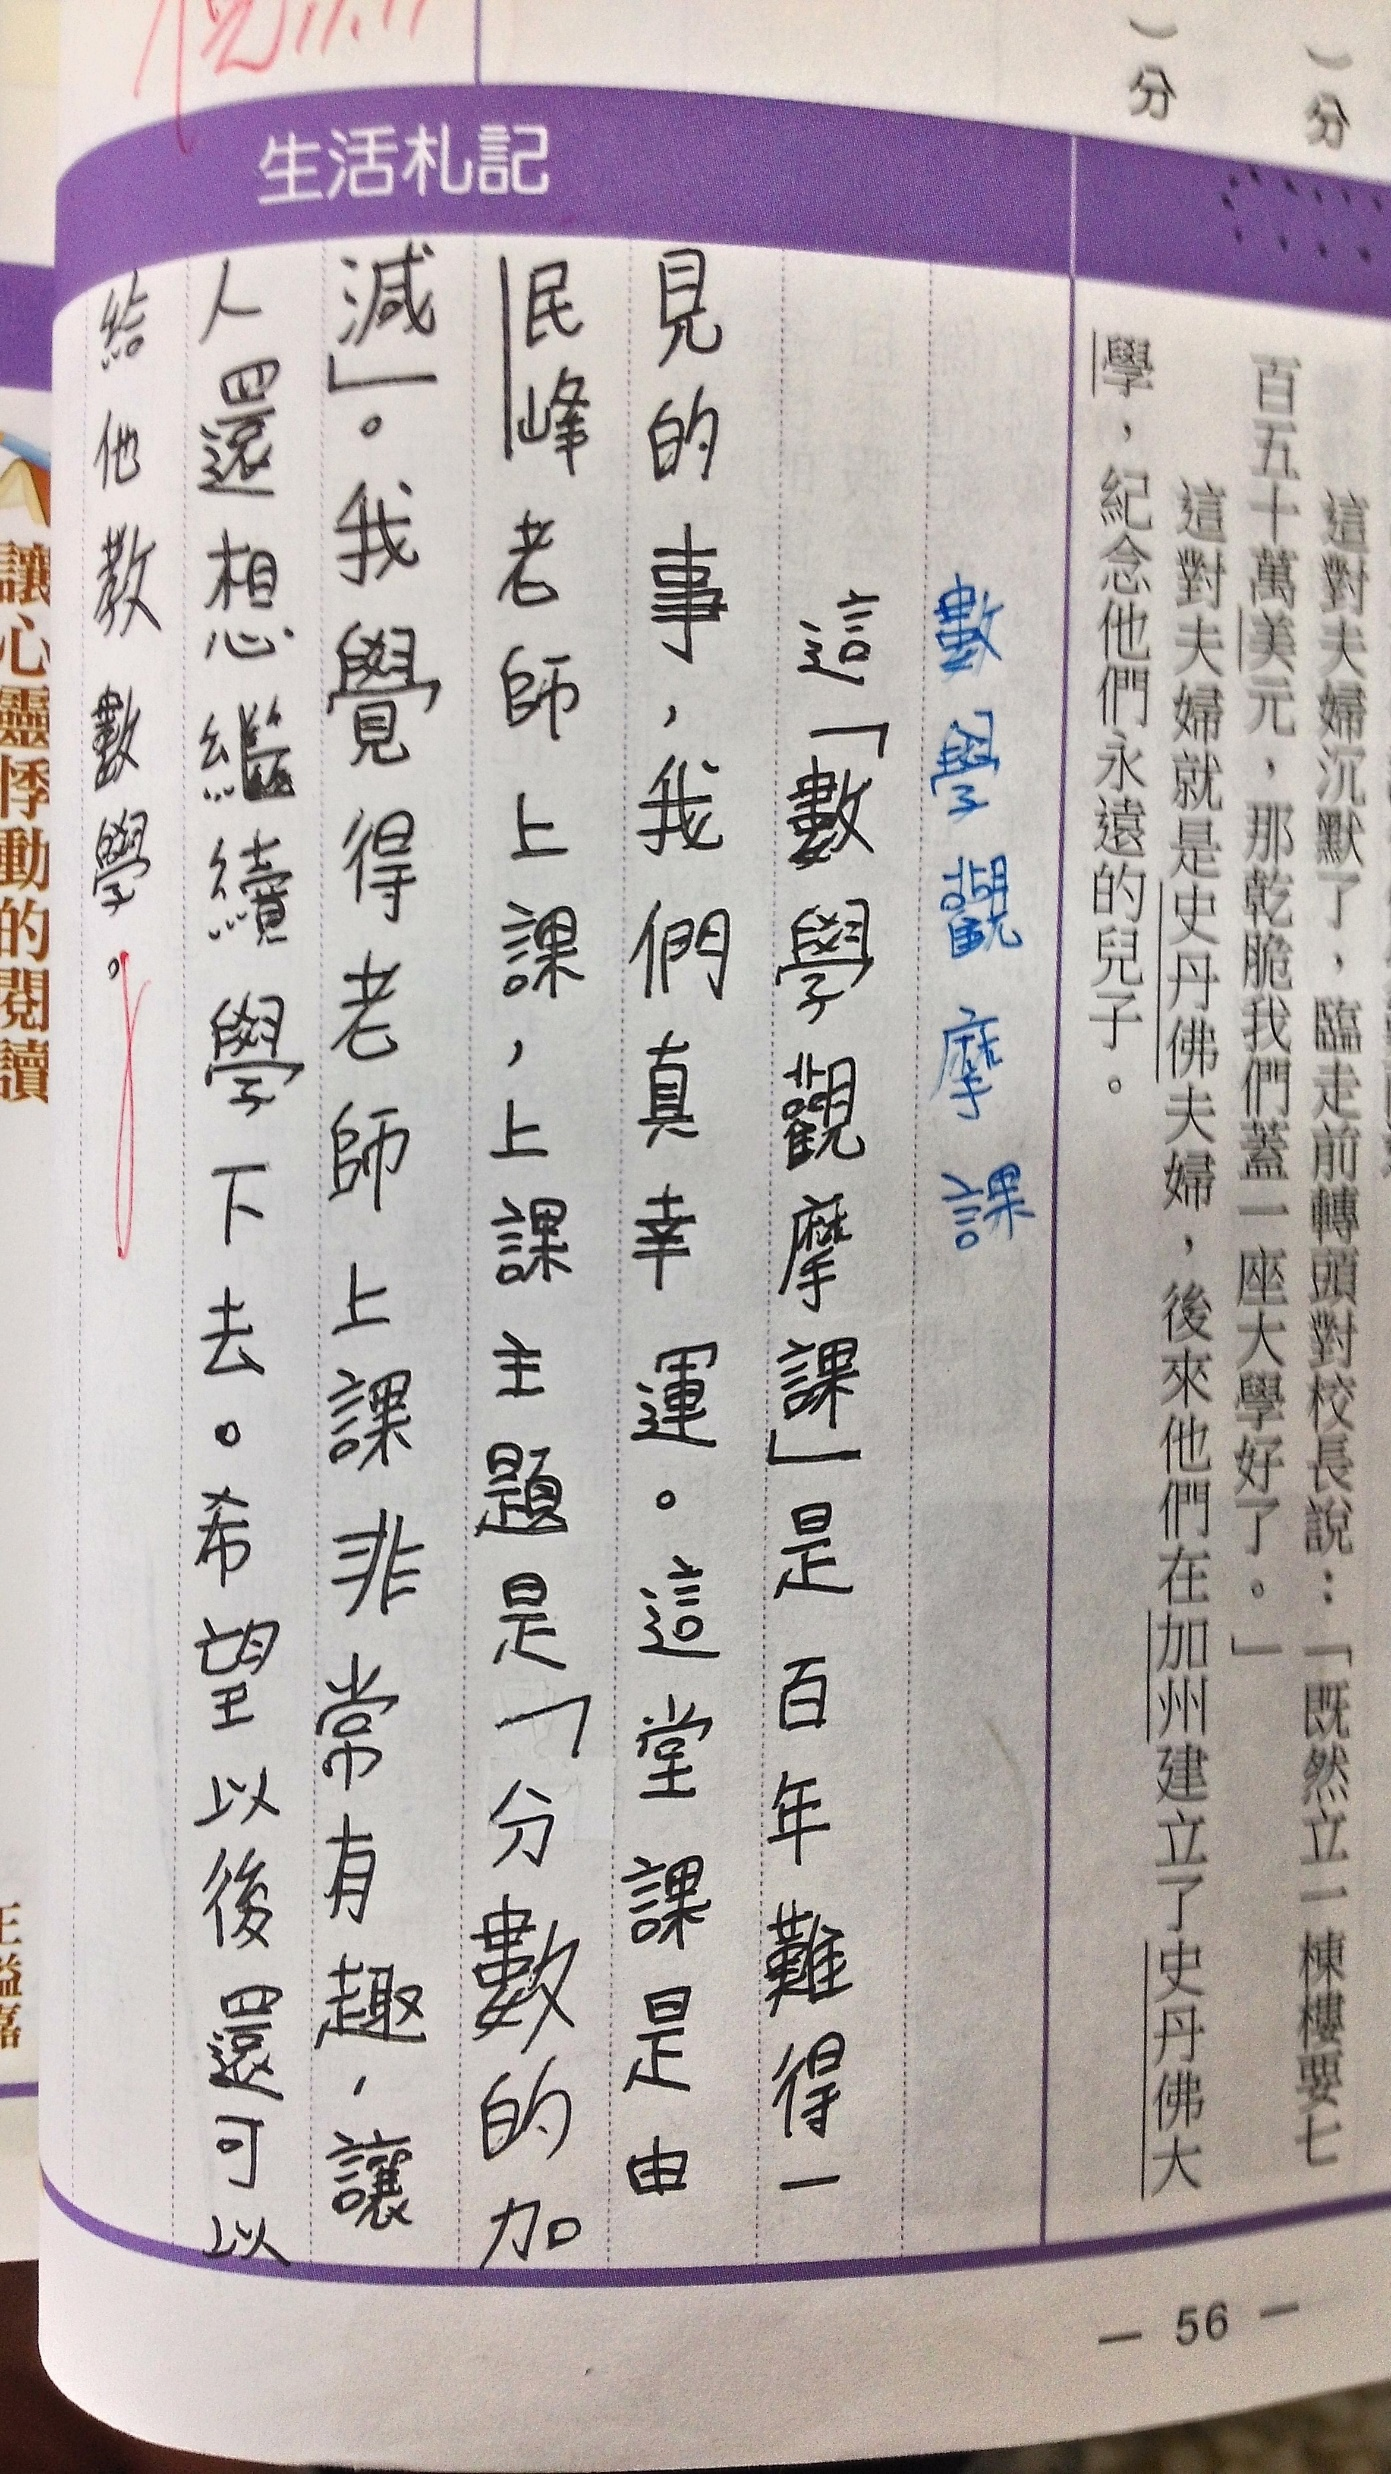 ）分
）分
這對夫婦沉默了，臨走前轉頭對校長說：「既然立一棟樓要七
百五十萬美元，那乾脆我們蓋一座大學好了。」
這對夫婦就是史丹佛夫婦，後來他們在加州建立了史丹佛大
學，紀念他們永遠的兒子。
生活札記
數學觀摩課
這「數學觀摩課」是百年難得一
見的事，我們真幸運。這堂課是由
民峰老師上課，上課主題是「分數的加
減」。我覺得老師上課非常有趣，讓
人還想繼續學下去。希望以後還可以
給他教數學。
— 56 —
讓心靈悸動的閱讀